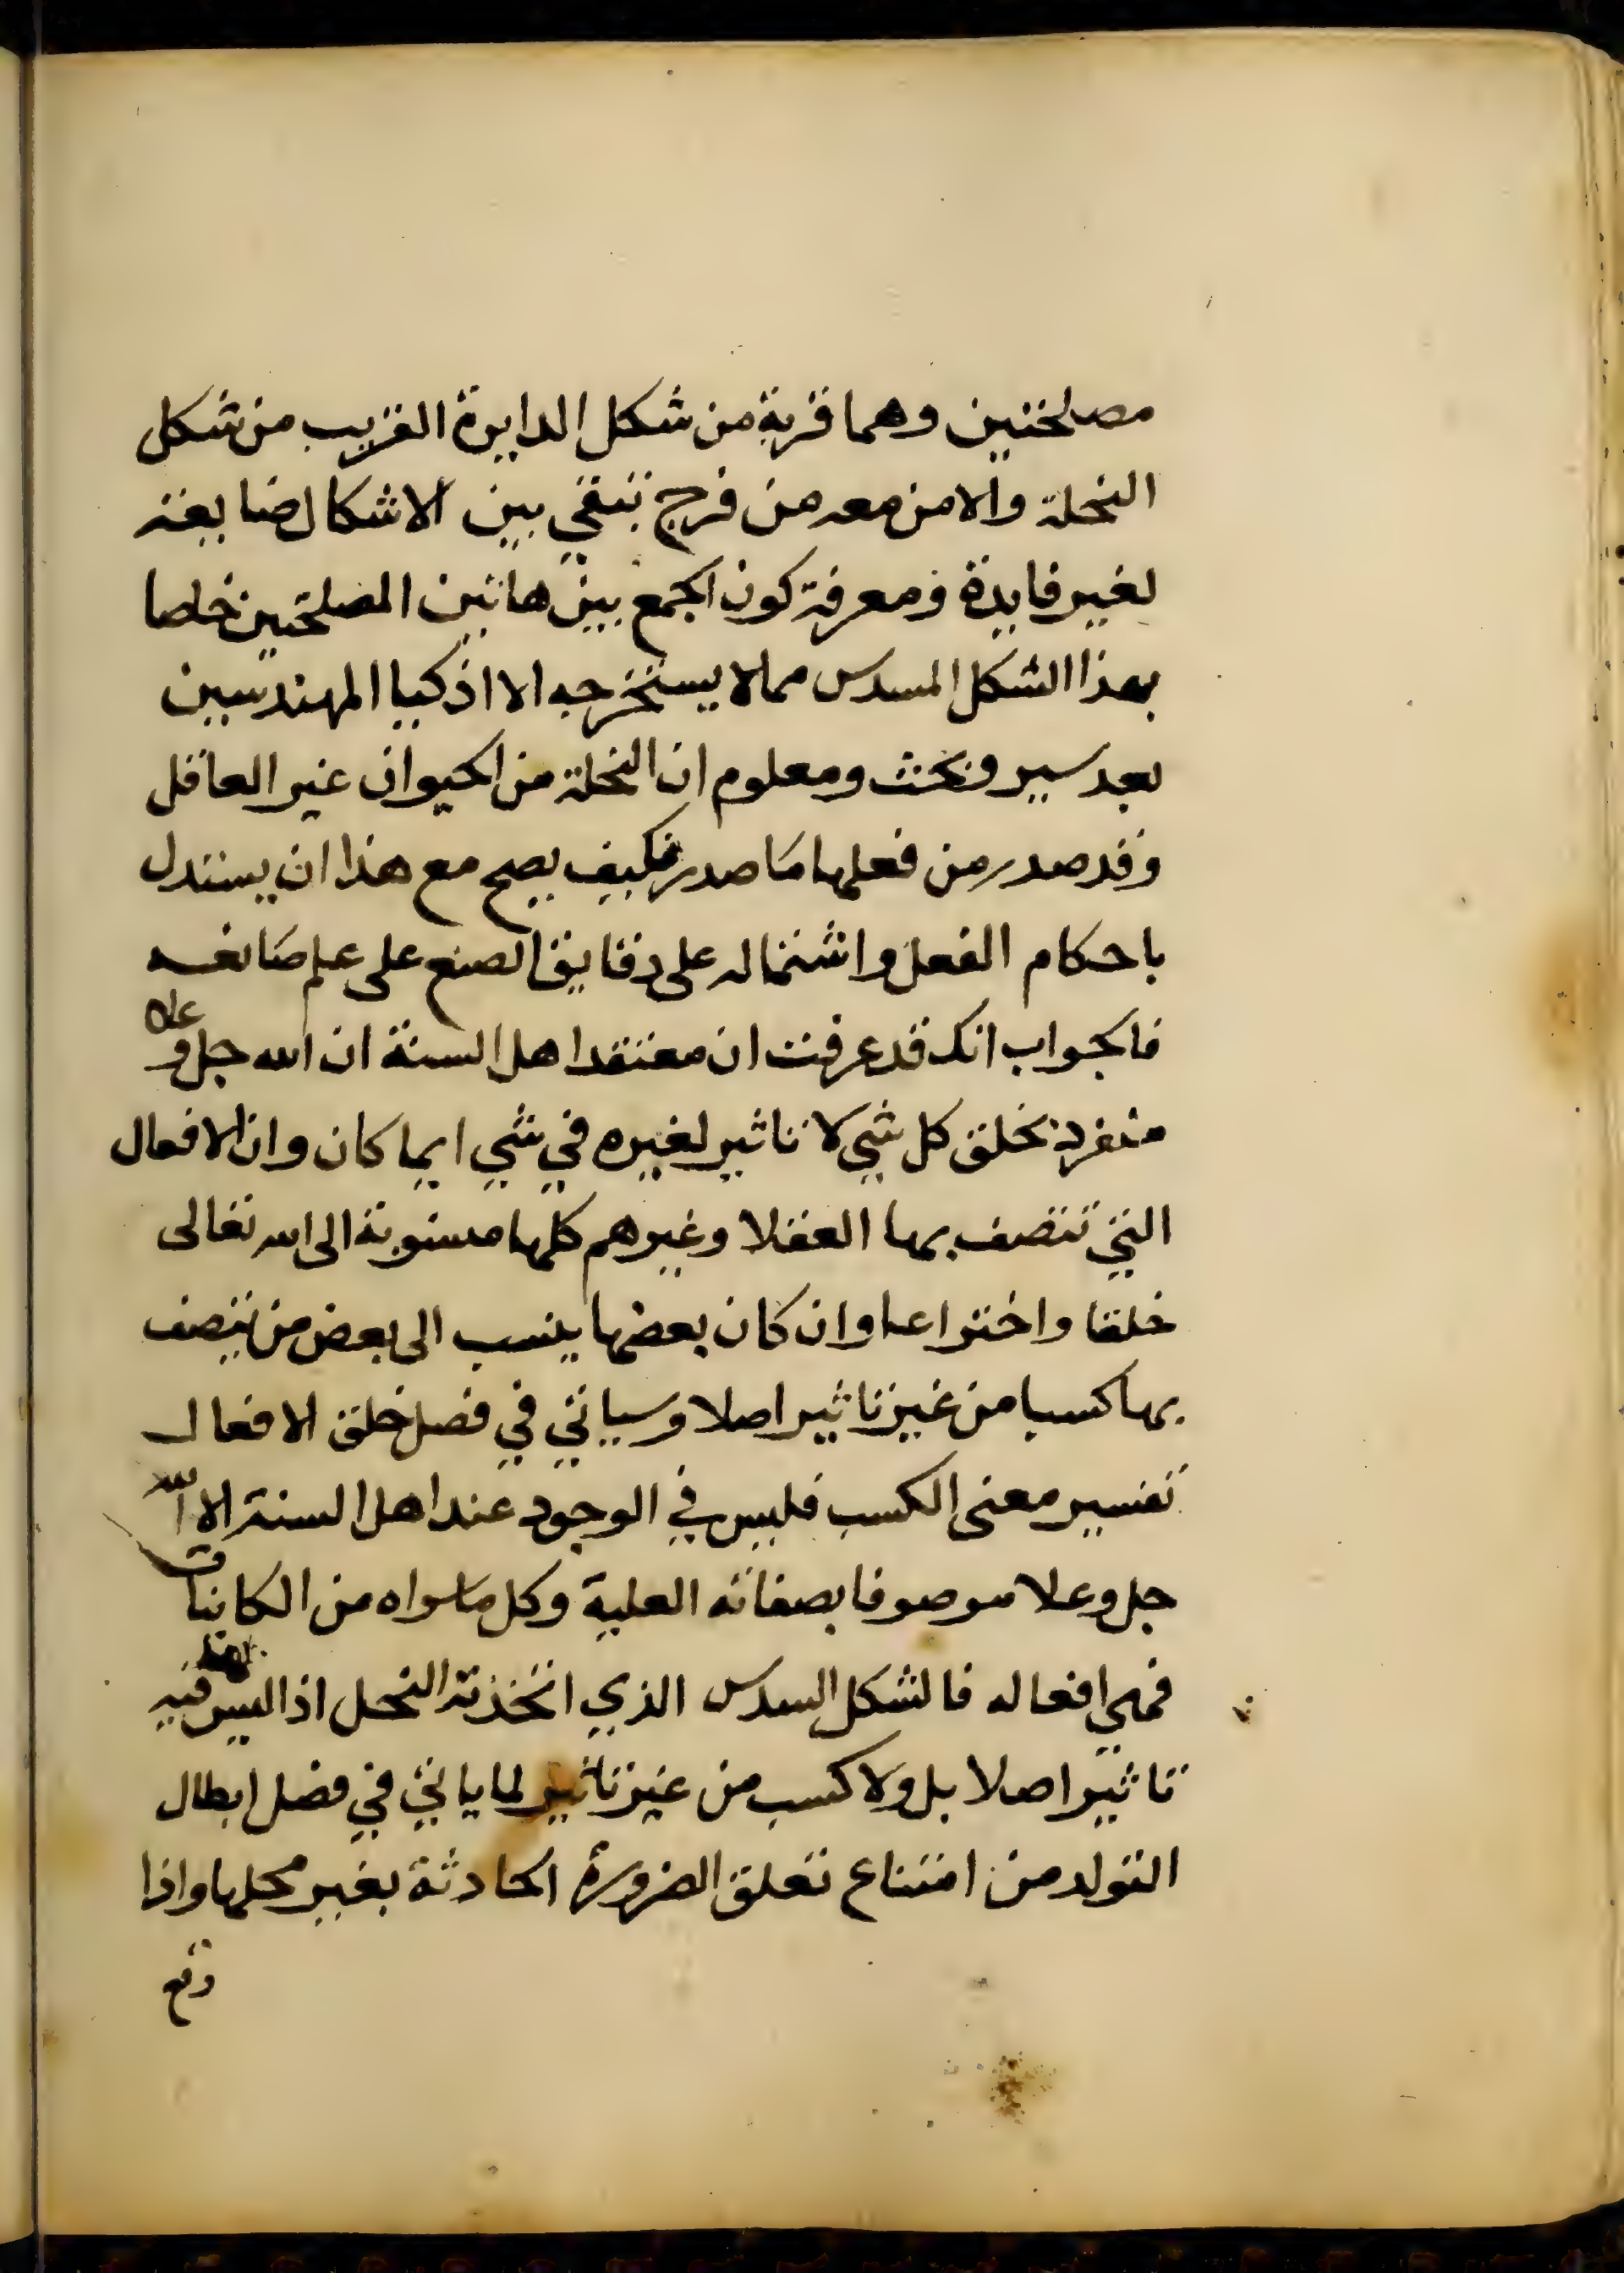 مصلحتين وهما قربه من شكل الدايرة القريب من شكل
النحلة والامن معه من فرج تبقي بين الاشكال ضايعة
لغير فايدة ومعرفة كون الجمع بين هاتين المصلحتين خاصا
بهذا الشكل المسدس مما لا يستخرجه الا اذكيا المهندسين
بعد سبر وبحث ومعلوم ان النحلة من الحيوان غير العاقل
وقد صدر من فعلها ما صدر فكيف يصح مع هذا ان يستدل
باحكام الفعل واشتماله على دقايق الصنع على علم صانعه
فالجواب انك قد عرفت ان معتقد اهل السنة ان الله جل وعلا
منفرد بخلق كل شي لا تاثير لغيره في شي ايما كان وان الافعال
التي تتصف بها العقلا وغيرهم كلها منسوبة الى الله تعالى
خلقا واختراعا وان كان بعضها ينسب الى بعض من يتصف
بها كسبا من غير تاثير اصلا وسياتي في فصل خلق الافعال
تفسير معنى الكسب فليس في الوجود عند اهل السنة الا الله
جل وعلا موصوفا بصفاته العلية وكل ما سواه من الكاينات
فهي افعاله فالشكل المسدس الذي اتخذته النحل اذا ليس لها فيه
تاثير اصلا بل ولا كسب من غير تاثير لما ياتي في فصل ابطال
التولد من امتناع تعلق الضرورة الحادثة بغير محلها واذا
وقع